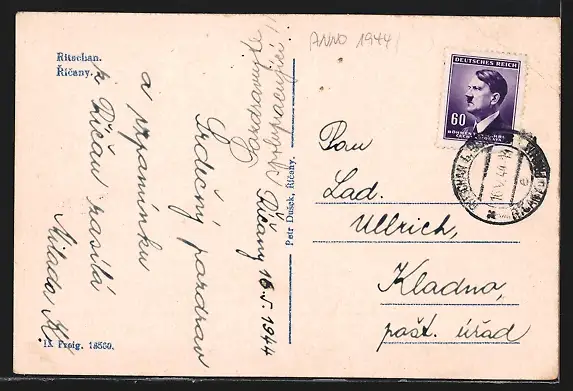 Ritschan.
Říčany.
Srdečný pozdrav
a vzpomínku
z Říčan zasílá
Milada K.
Říčany 16.5.1944
IX Freig. 18550.
Petr Dušek, Říčany.
Anno 1944
DEUTSCHES REICH
60
BÖHMEN
Pan
Lad.
Ullrich,
Kladno,
pošt. úřad